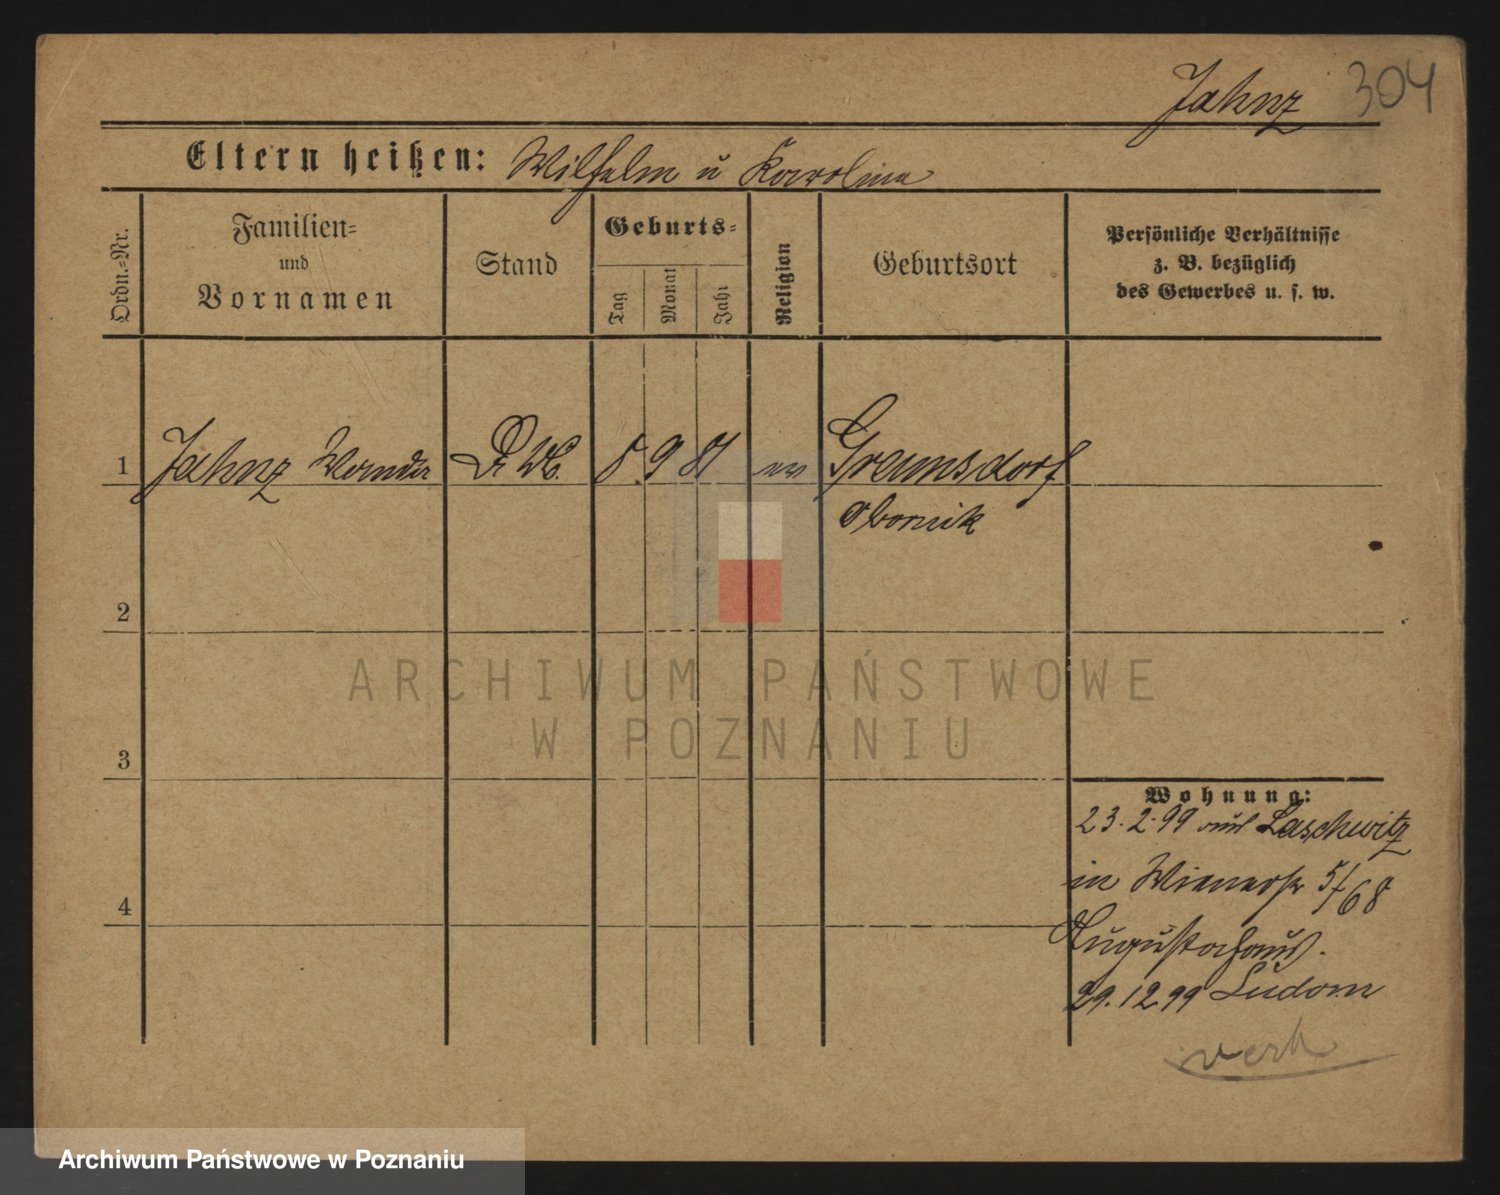 Jahnz 304
Eltern heißen: Wilhelm u Karoline
Ordn.-Nr.
Familien-
und
Vornamen
Stand
Geburts-
Tag
Monat
Jahr
Religion
Geburtsort
Persönliche Verhältnisse
z. B. bezüglich
des Gewerbes u. s. w.
1 Jahnz Wanda 8. 9 81 ev Gramsdorf
Obornik
2
ARCHIWUM PAŃSTWOWE
W POZNANIU
3
Wohnung:
23.2.99 aus Laschwitz
in Wienerstr 5/68
Augustahaus.
4
29.12.99 Ludom
verh
Archiwum Państwowe w Poznaniu